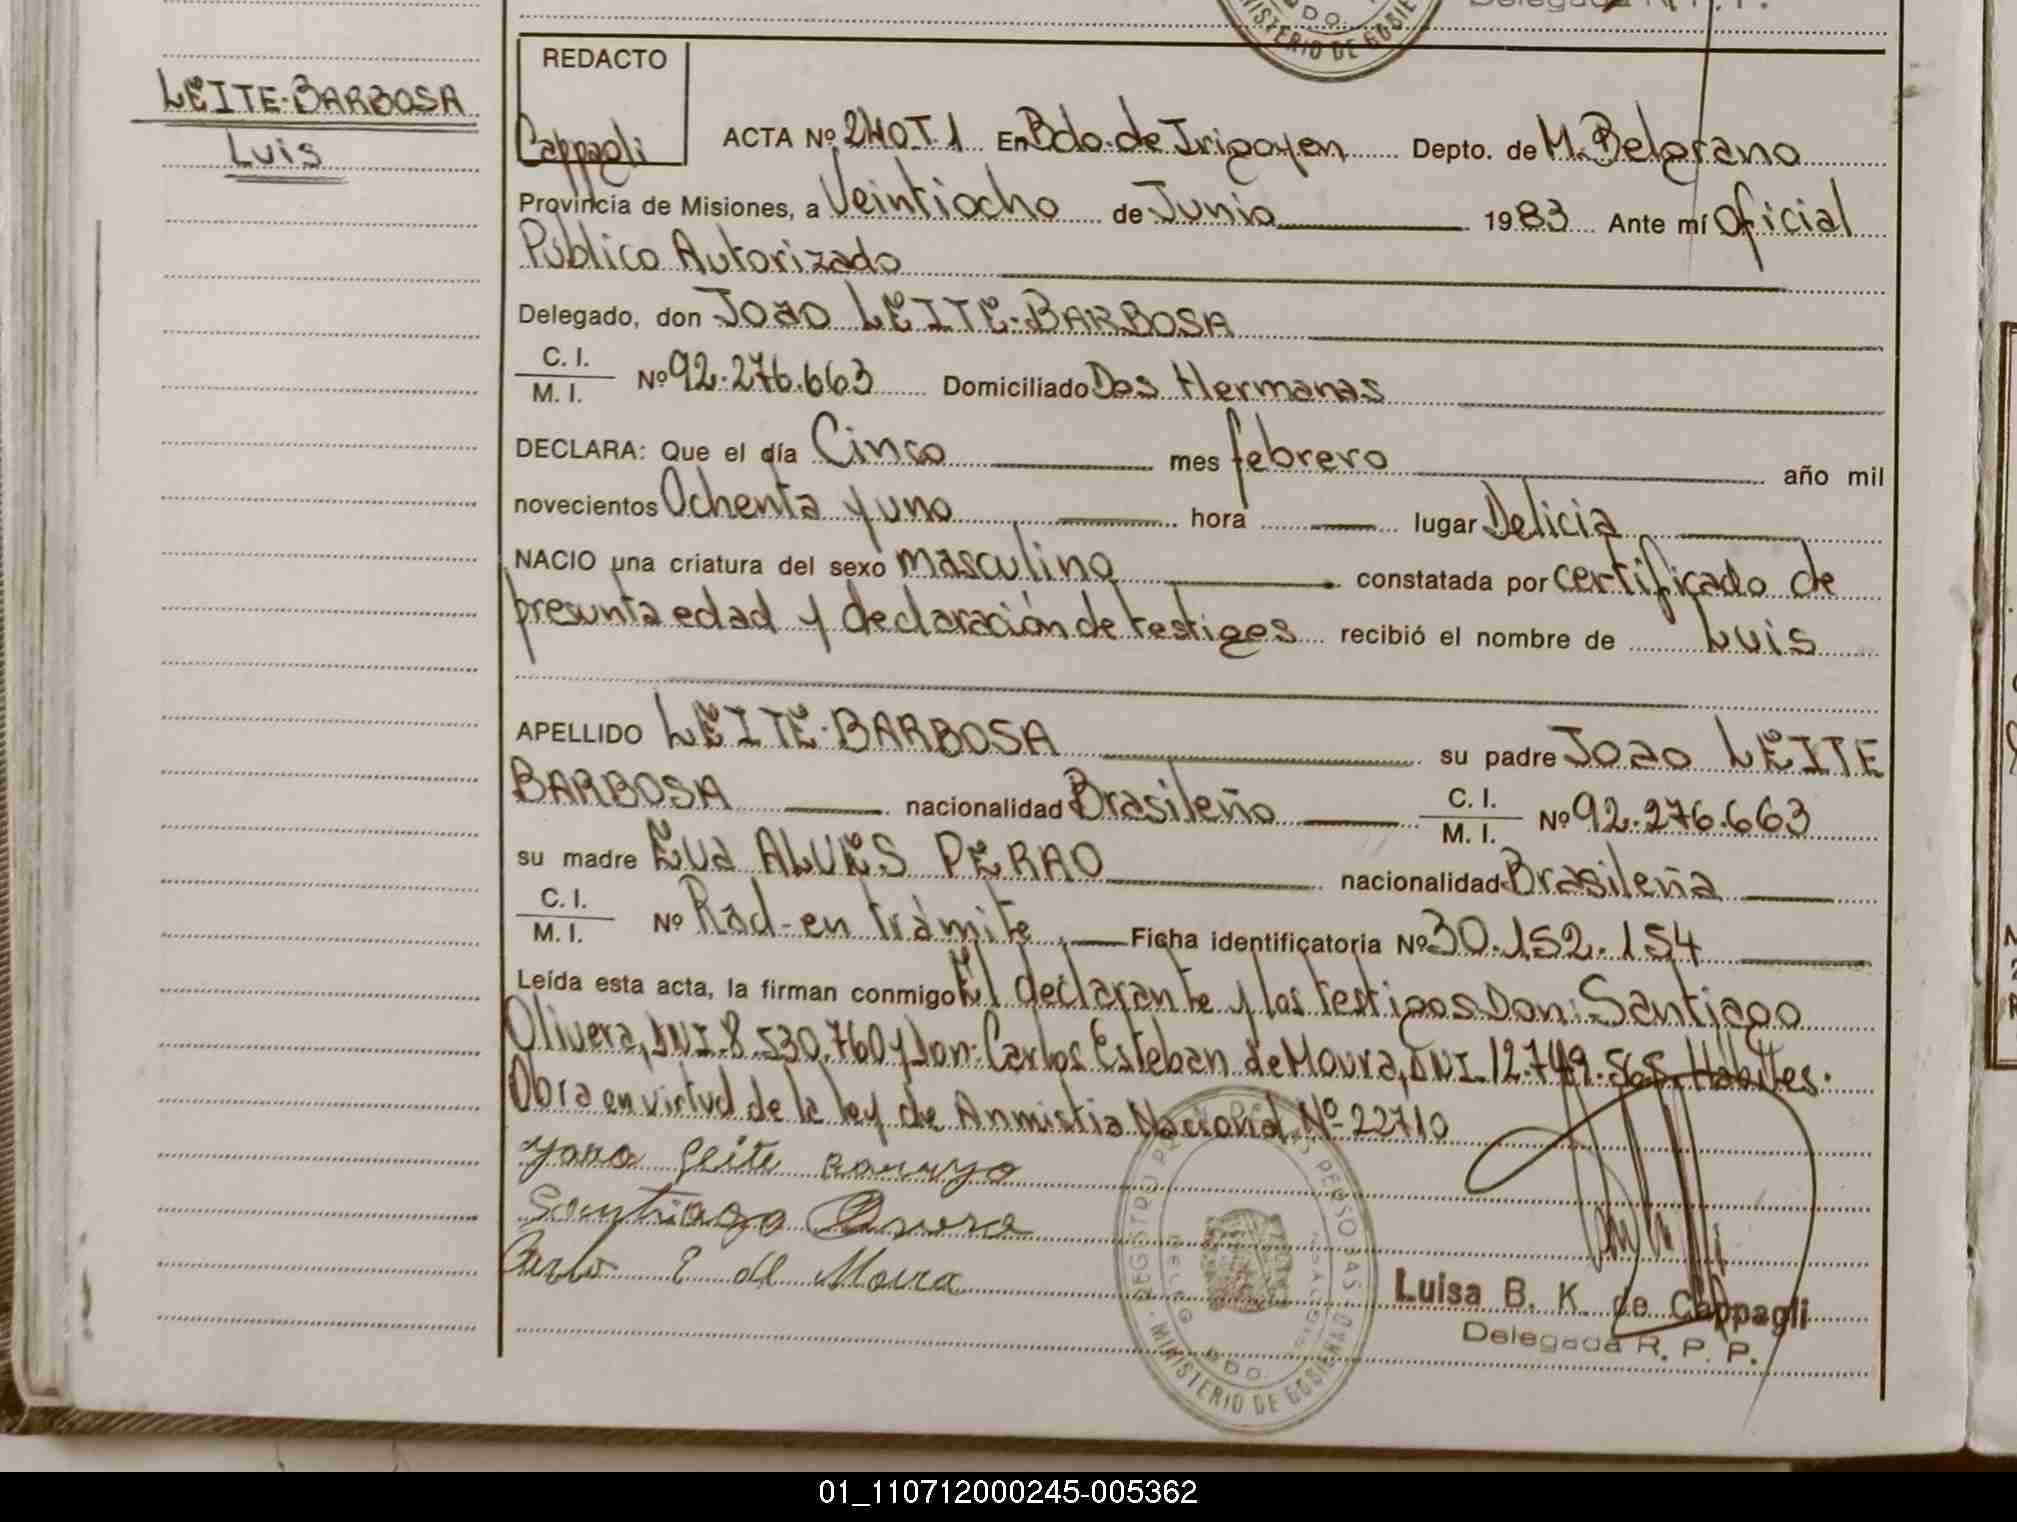 Delegada R. P. P.
MINISTERIO DE GOBIE
BDO.
REDACTO
LEITE-BARBOSA
Luis
Cappagli
ACTA Nº 240.T1 En Bdo. de Irigoyen Depto. de M. Belgrano
Provincia de Misiones, a Veintiocho de Junio 1983 Ante mí Oficial
Público Autorizado
Delegado, don Joao LEITE-BARBOSA
C. I.
M. I. Nº 92.276.663 Domiciliado Dos Hermanas
DECLARA: Que el día Cinco mes febrero año mil
novecientos Ochenta y uno hora lugar Delicia
NACIO una criatura del sexo masculino constatada por certificado de
presunta edad y declaración de testigos recibió el nombre de Luis
APELLIDO LEITE-BARBOSA su padre Joao LEITE
BARBOSA nacionalidad Brasileño C. I. M. I. Nº 92.276.663
su madre Eva ALVES PERAO nacionalidad Brasileña
C. I.
M. I. Nº Rad-en trámite Ficha identificatoria Nº 30.152.154
Leída esta acta, la firman conmigo El declarante y los testigos Don: Santiago
Olivera, DNI.8.530.760 y Don: Carlos Esteban de Moura, DNI.12.749.565. Hábiles.
Obra en virtud de la ley de Anmistia Nacional Nº 22710
Santiago
Carlo E de Moura
REGISTRO PERSONAS
MINISTERIO DE GOBIERNO
DELEG
BDO.
Luisa B. K. de Cappagli
Delegada R. P. P.
01_110712000245-005362